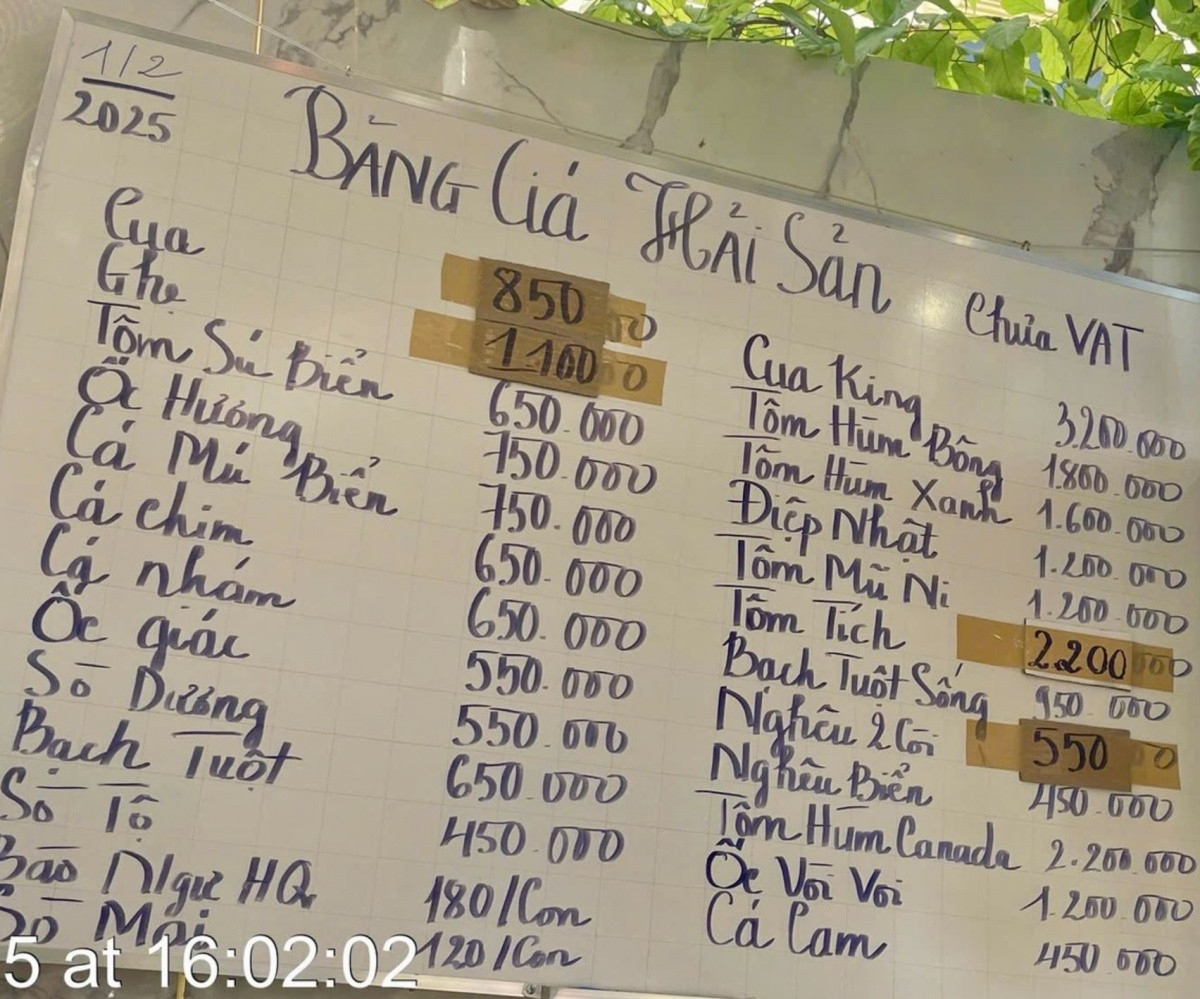 1/2
2025
BẢNG Giá HẢI Sản
Chưa VAT
Cua 850
Ghẹ 1.100
Tôm Sú Biển 650.000
Ốc Hương 750.000
Cá Mú Biển 750.000
Cá chim 650.000
Cá nhám 650.000
Ốc giác 550.000
Sò Dương 550.000
Bạch Tuột 650.000
Sò Tộ 450.000
Bào Ngư HQ 180/Con
Sò Mai 120/Con
Cua King 3.200.000
Tôm Hùm Bông 1.800.000
Tôm Hùm Xanh 1.600.000
Điệp Nhật 1.200.000
Tôm Mũ Ni 1.200.000
Tôm Tích 2.200
Bạch Tuột Sống 950.000
Nghêu 2 Cồi 550
Nghêu Biển 450.000
Tôm Hùm Canada 2.200.000
Ốc Vòi Voi 1.200.000
Cá Cam 450.000
5 at 16:02:02